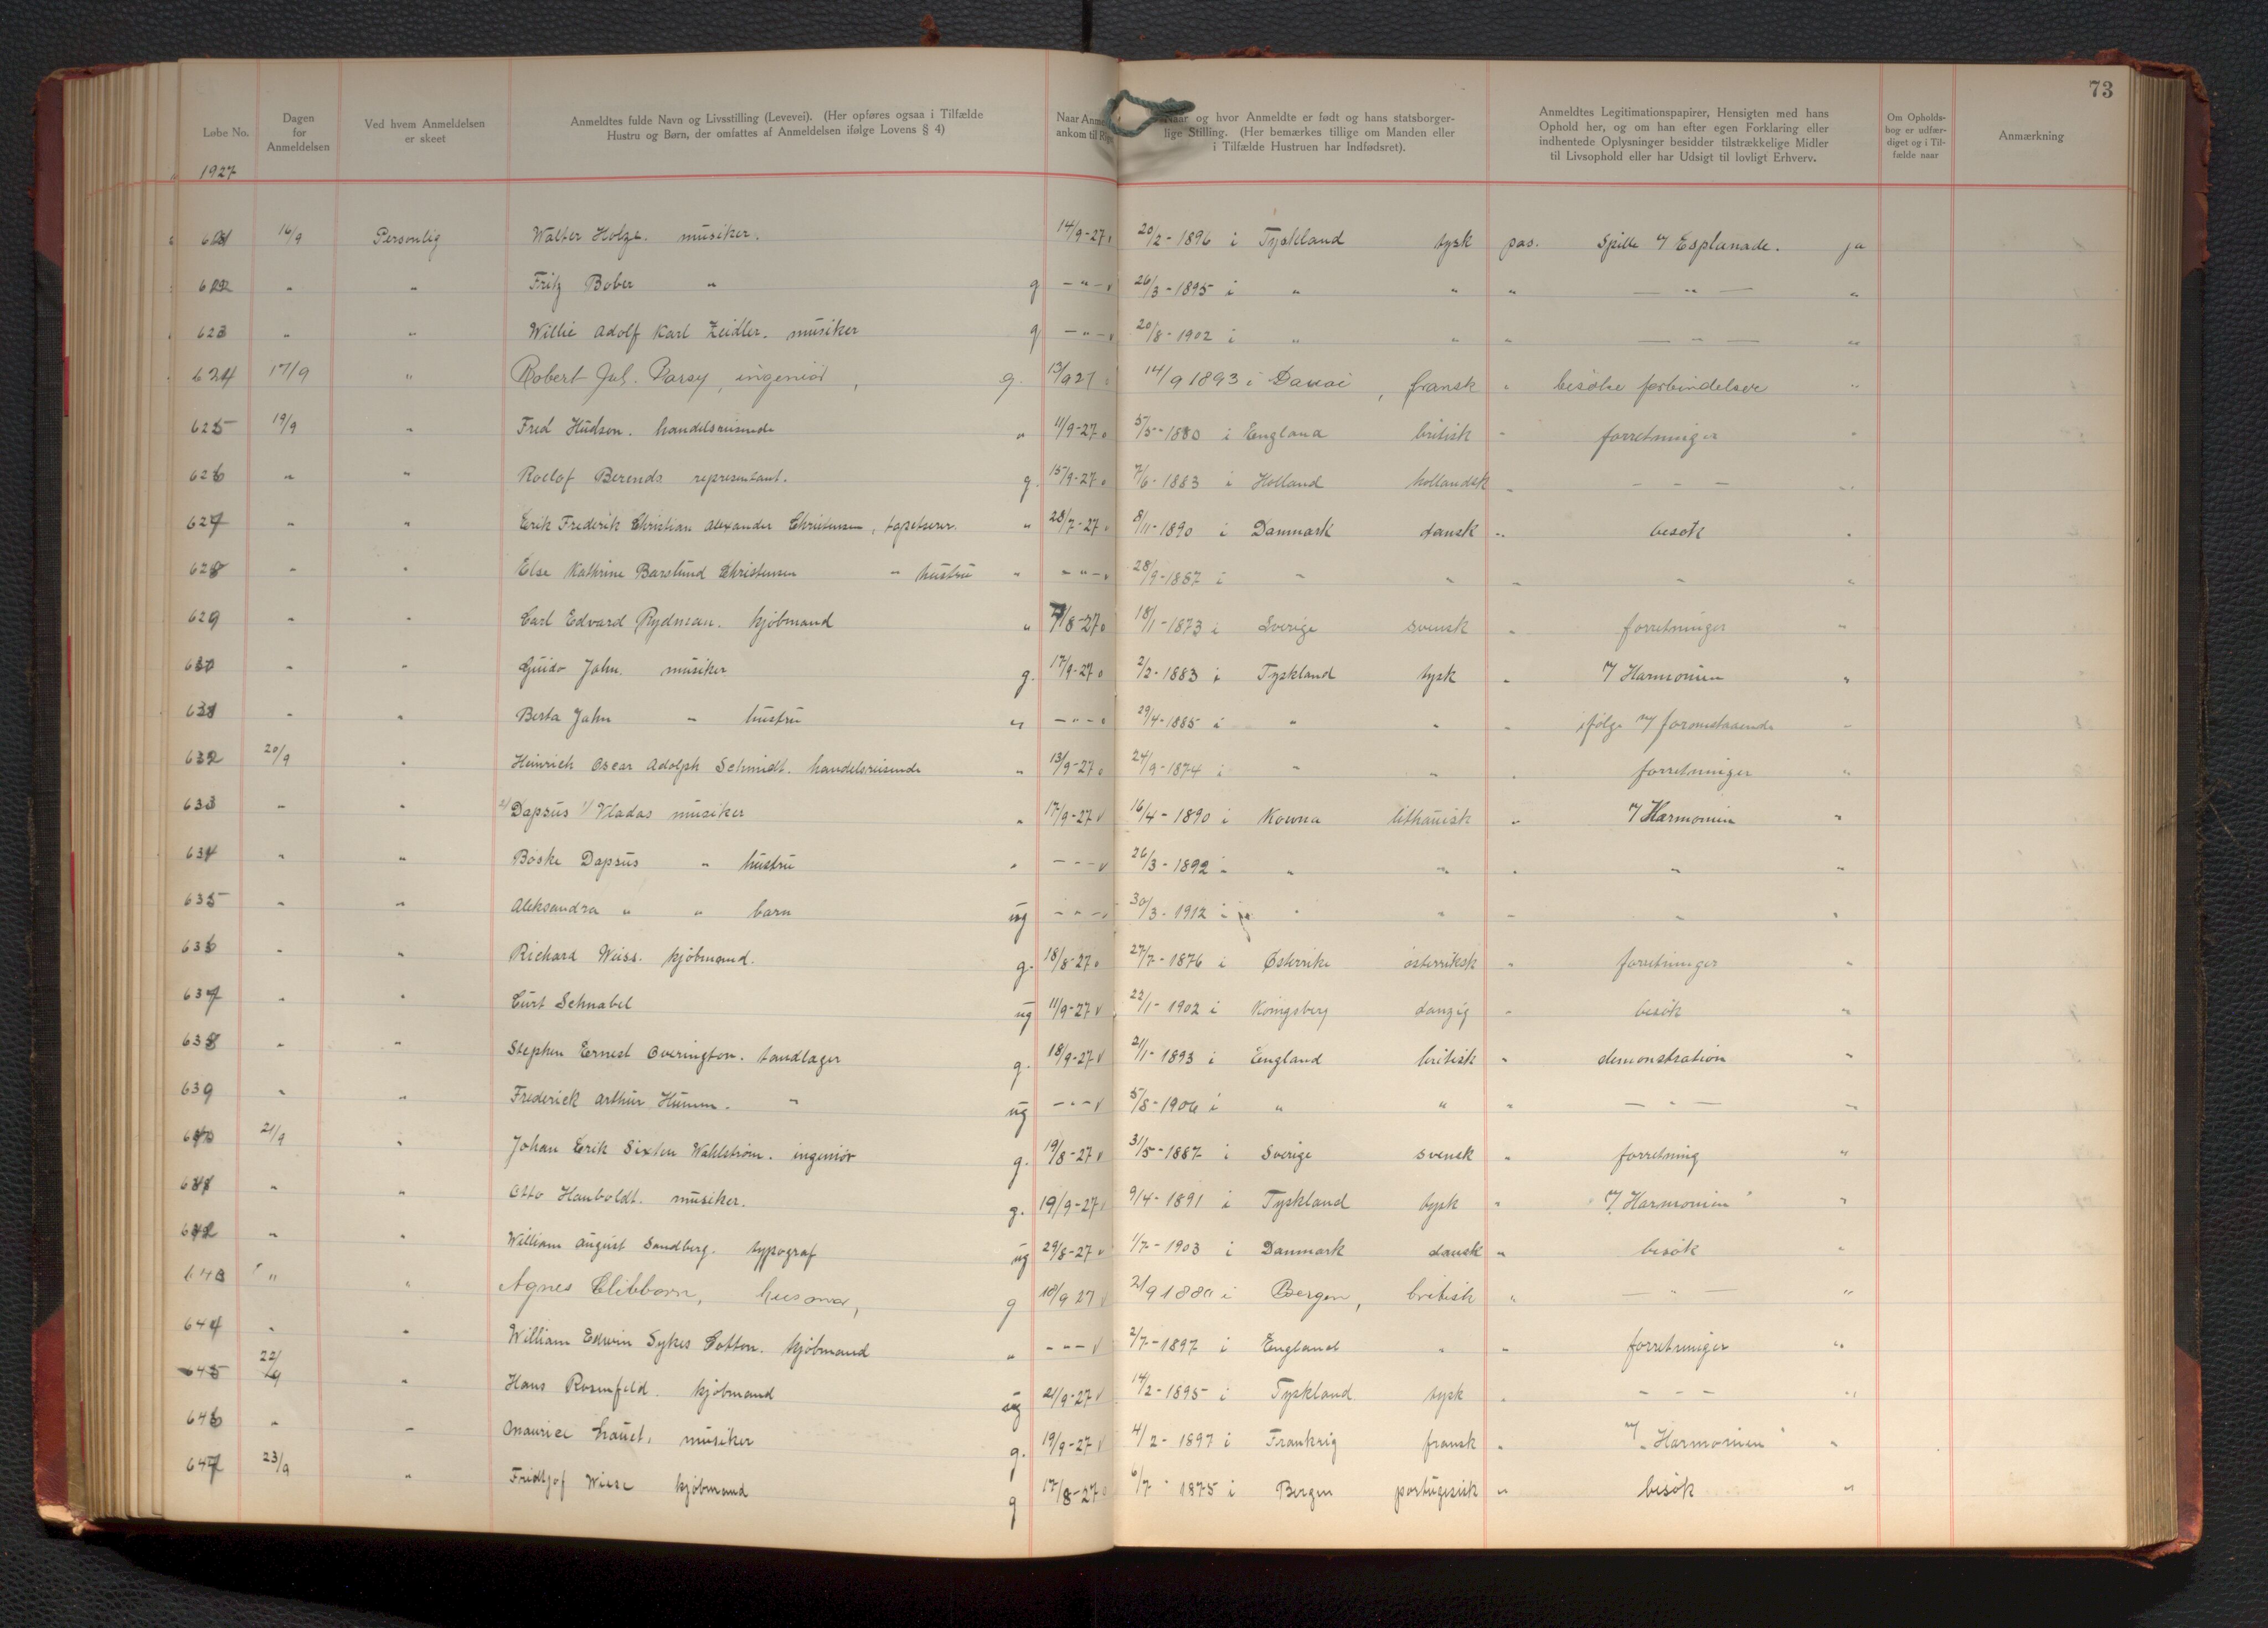 73
Løbe No. | Dagen for Anmeldelsen | Ved hvem Anmeldelsen er skeet | Anmeldtes fulde Navn og Livsstilling (Levevei). (Her opføres ogsaa i Tilfælde Hustru og Børn, der omfattes af Anmeldelsen ifølge Lovens § 4) | Naar Anmel ankom til Rig | Naar og hvor Anmeldte er født og hans statsborgerlige Stilling. (Her bemærkes tillige om Manden eller i Tilfælde Hustruen har Indfødsret). | Anmeldtes Legitimationspapirer, Hensigten med hans Ophold her, og om han efter egen Forklaring eller indhentede Oplysninger besidder tilstrækkelige Midler til Livsophold eller har Udsigt til lovligt Erhverv. | Om Opholdsbog er udfærdiget og i Tilfælde naar | Anmærkning
1927
621 16/9 Personlig Walter Holze. musiker. 14/9-27 20/2-1896 i Tyskland tysk pas. Spille v/ Esplanade. ja
622 " " Fritz Bober " g - " - 26/3-1895 i " " " - " - "
623 " " Willie Adolf Karl Zeidler. musiker g - " - 20/8-1902 i " " " - " - "
624 17/9 " Robert Jul. Parsy, ingeniør, g. 13/9 27 14/9 1893 i Douai, fransk " besøke forbindelser "
625 19/9 " Fred Hudson. handelsreisende " 11/9-27 5/5-1880 i England britisk " forretninger "
626 " " Roelof Berends representant. g. 15/9-27 7/6-1883 i Holland hollandsk " - - - "
627 " " Erik Frederik Christian Alexander Christensen, tapetserer. " 28/7-27 8/11-1890 i Danmark dansk " besøk "
628 " " Else Kathrine Barslund Christensen " hustru " - " - 28/9-1887 i " " " " "
629 " " Carl Edvard Rydman. kjøbmand " /8-27 18/1-1873 i Sverige svensk " forretninger "
630 " " Guido Jahn. musiker g. 17/9-27 2/2-1883 i Tyskland tysk " v/ Harmonien "
631 " " Berta Jahn " hustru " - " - 29/4-1885 i " " " ifølge m/ foranstaaende "
632 20/9 " Heinrich Oscar Adolph Schmidt. handelsreisende " 13/9-27 24/9-1874 i " " " forretninger "
633 " " 2/ Dapsus 1/ Vladas musiker " 17/9-27 16/4-1890 i Kowna lithauisk " v/ Harmonien "
634 " " Boske Dapsus " hustru " - - - 26/3-1892 " " " " " "
635 " " Aleksandra " " barn ug - " - 30/3-1912 i " " " " "
636 " " Richard Weiss. kjøbmand. g. 18/8-27 27/7-1876 i Østerrike østerriksk " forretninger "
637 " " Curt Schnabel ug 11/9-27 22/1-1902 i Königsberg danzig " besøk "
638 " " Stephen Ernest Overington. tandlæger g. 18/9-27 21/1-1893 i England britisk " demonstration "
639 " " Frederick Arthur Humm. " ug - - - 5/8-1906 i " " " - " - "
640 21/9 " Johan Erik Sixten Wahlström. ingeniør g. 19/8-27 31/5-1887 i Sverige svensk " forretning "
641 " " Otto Hauboldt. musiker. g. 19/9-27 9/4-1891 i Tyskland tysk " v/ "Harmonien" "
642 " " William August Sandberg. typograf ug 29/8-27 1/7-1903 i Danmark dansk " besøk "
643 " " Agnes Clibborn, husmor, g 18/9 27 2/9 188 i Bergen, britisk " - " - "
644 " " William Edwin Sykes Cotton. kjøbmand " - - - 2/7-1897 i England " " forretninger "
645 22/9 " Hans Rosenfeld. kjøbmand ug 21/9-27 14/2-1895 i Tyskland tysk " - - - "
646 " " Maurice Lauet. musiker g. 19/9-27 4/2-1897 i Frankrig fransk " v/ "Harmonien" "
647 23/9 " Fridtjof Wiese kjøbmand g 17/8-27 6/7-1875 i Bergen portugisisk " besøk "